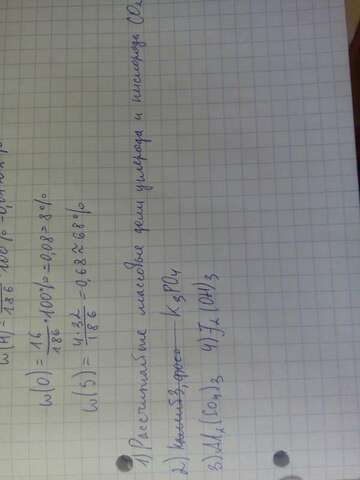 w(H) = /186 · 100%
w(O) = 16/186 · 100% = 0,08 = 8%
w(S) = 4·32/186 = 0,68 ≈ 68%
1) Рассчитайте массовые доли углерода и кислорода CO₂
2) K₃PO₄
3) Al₂(CO₄)₃ 4) F₂(OH)₃